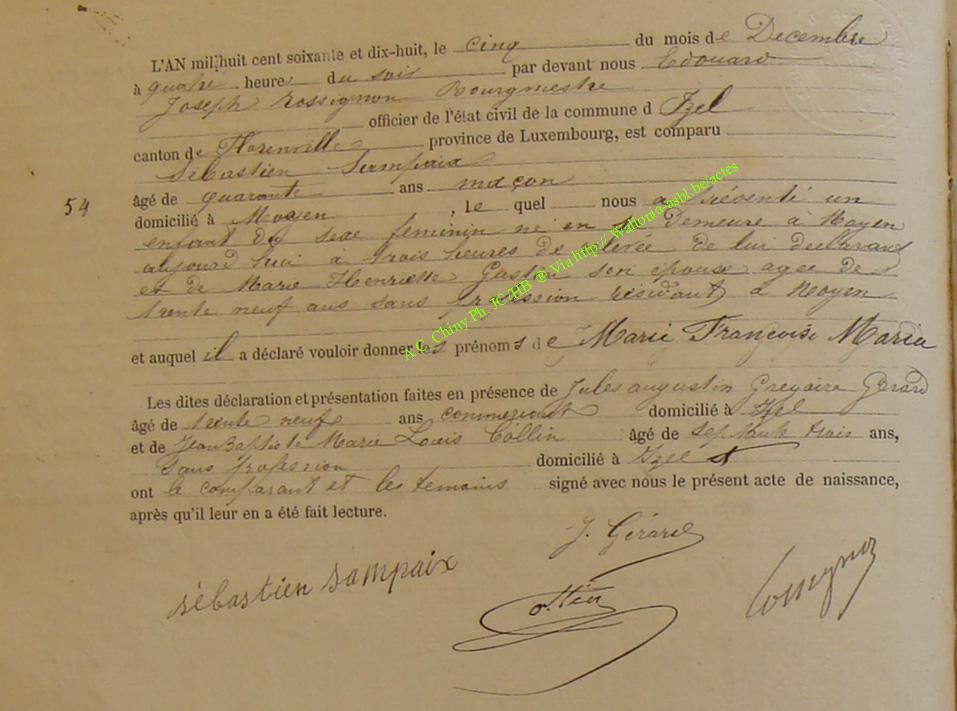 L'AN mil huit cent soixante et dix-huit, le cinq du mois de Decembre
à quatre heures du soir par devant nous Edouard
Joseph Rossignon Bourgmestre
officier de l'état civil de la commune d Izel
canton de Florenville province de Luxembourg, est comparu
Sébastien Sampaix
âgé de quarante ans maçon
54
domicilié à Moyen , le quel nous a présenté un
enfant du sexe feminin né en sa Demeure à Moyen
aujourd'hui a trois heures de relevée de lui déclarant
et de Marie Henriette Gaston son épouse agée de
trente neuf ans sans profession résidant à Moyen
et auquel il a déclaré vouloir donner les prénoms de Marie Françoise Maria
Les dites déclaration et présentation faites en présence de Jules augustin Gregoire Gérard
âgé de trente neuf ans commerçant domicilié à Izel
et de Jean Baptiste Marie Louis Collin âgé de septante trois ans,
sans profession domicilié à Izel
ont le comparant et les temoins signé avec nous le présent acte de naissance,
après qu'il leur en a été fait lecture.
J. Gérard
sébastien sampaix
A.E. Chiny Ph. JC-HB ® Via http://Wallonia-asbl.be/actes